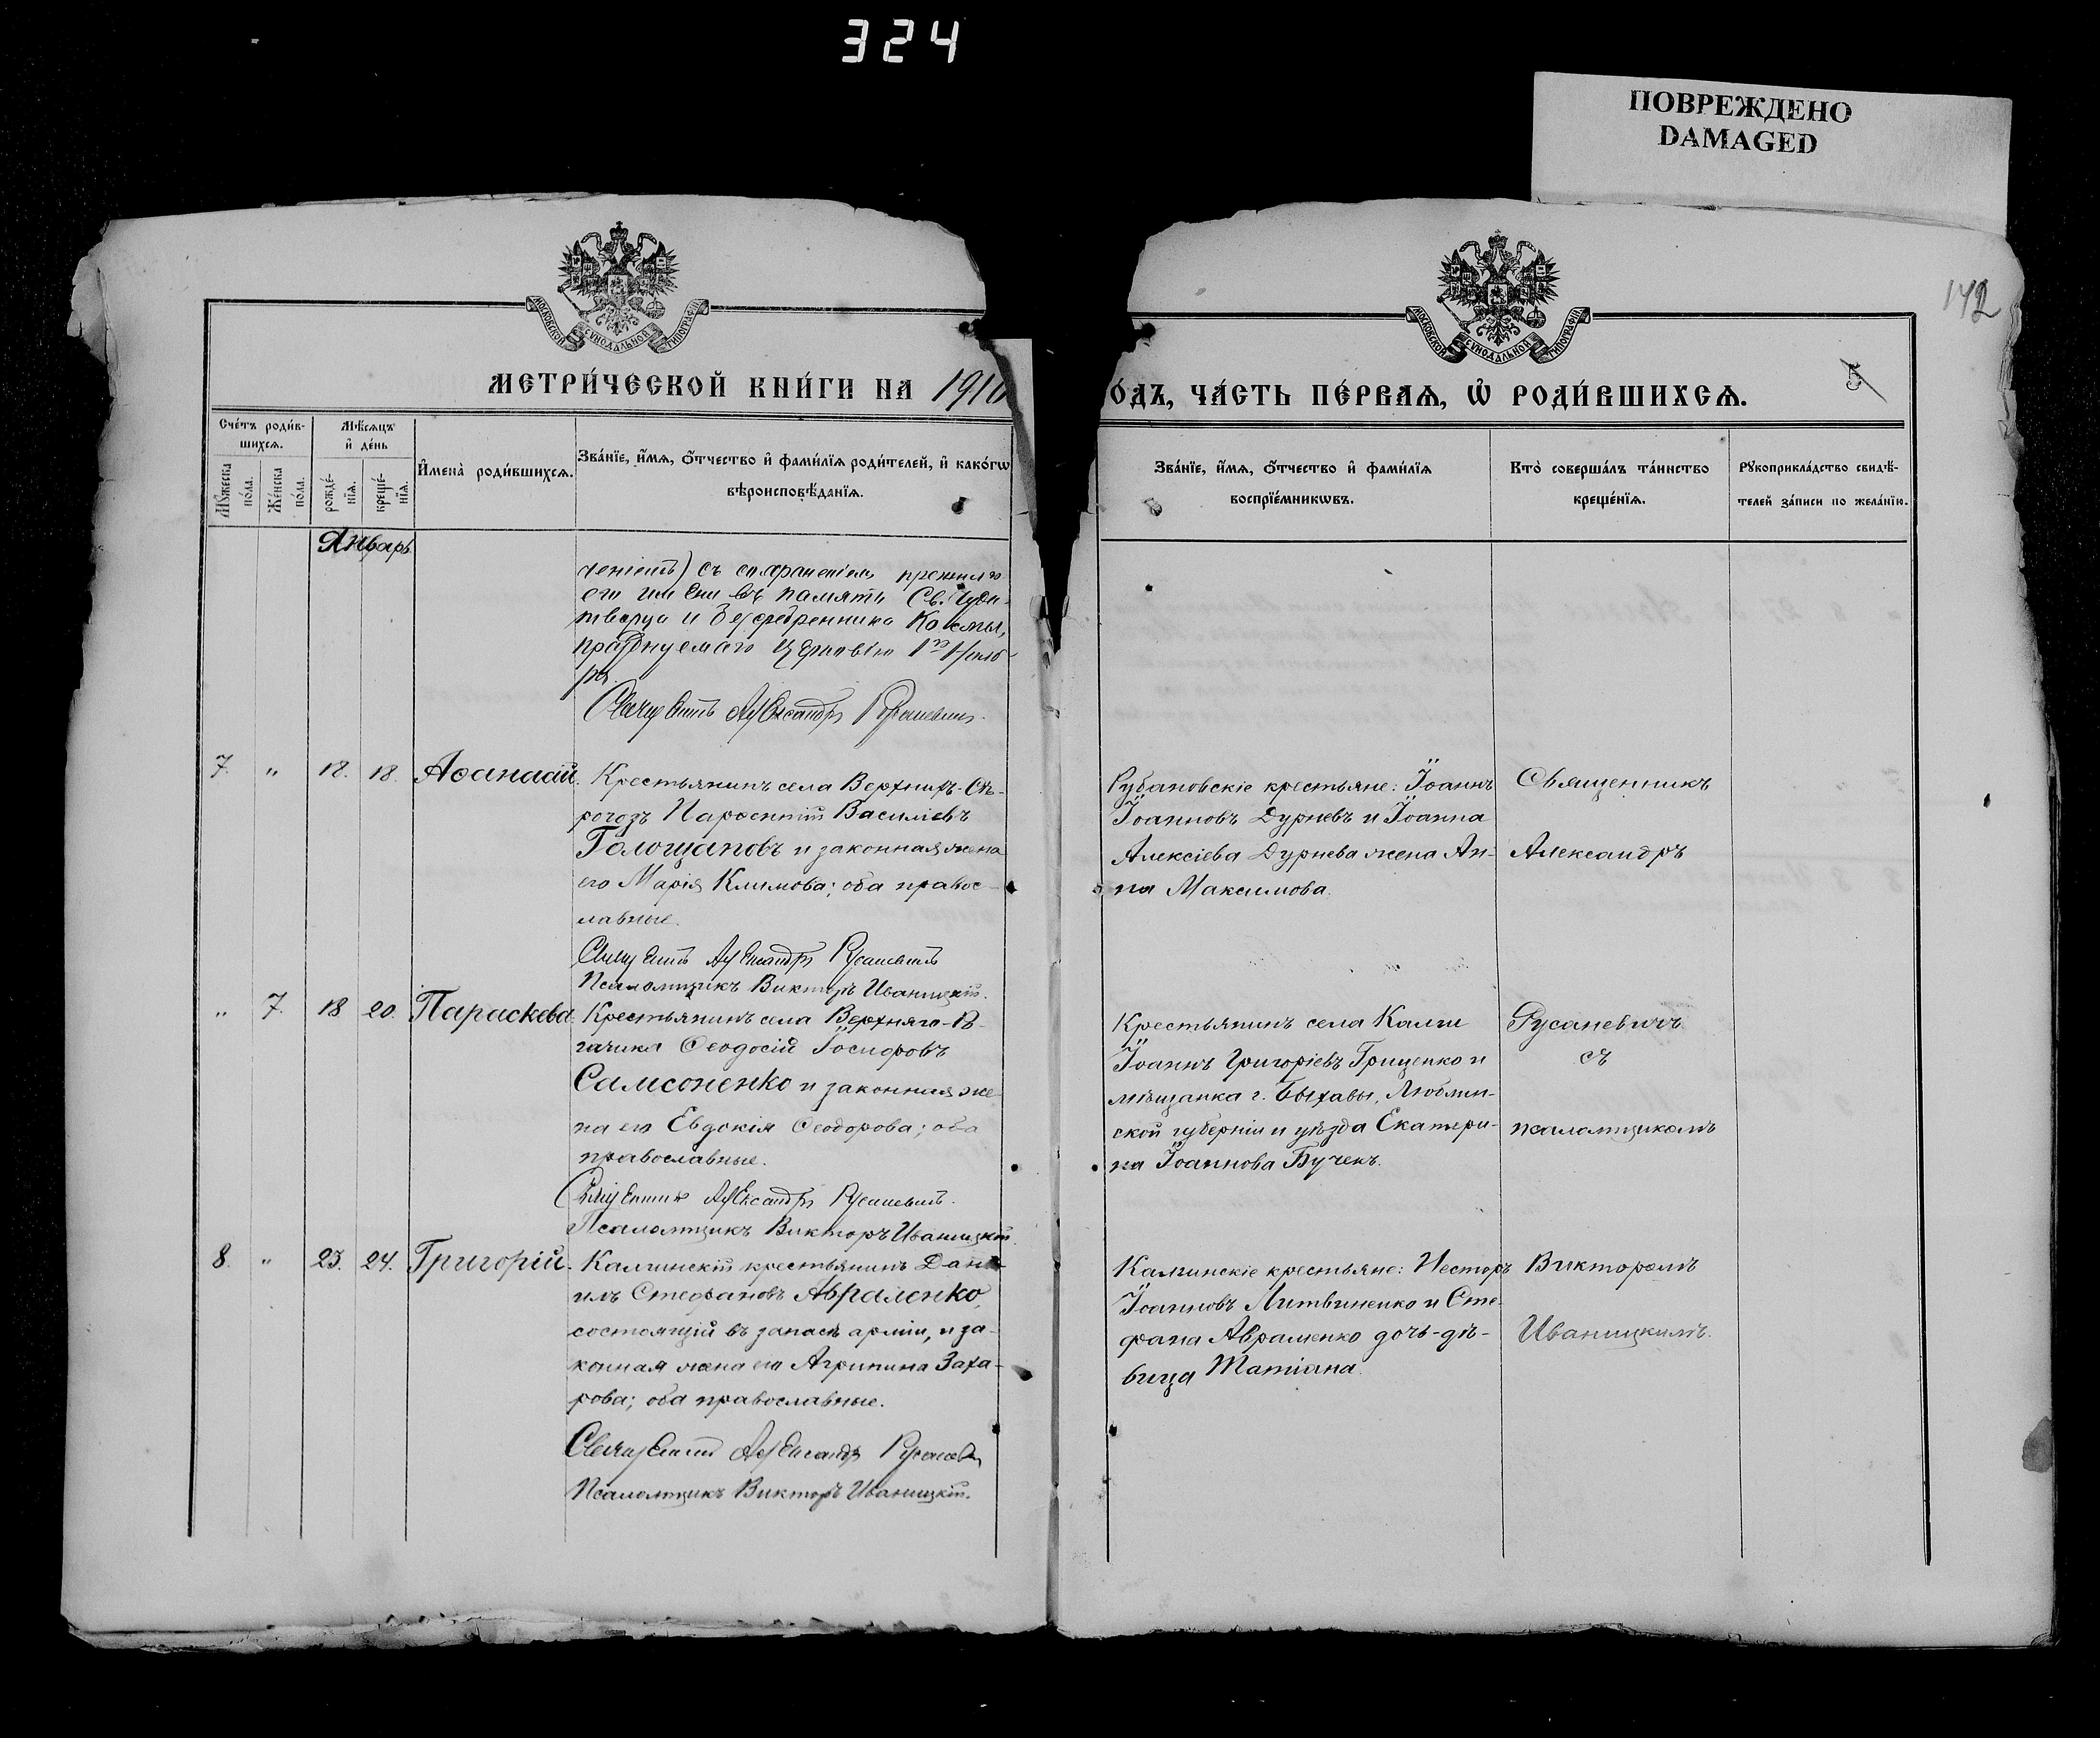 324
ПОВРЕЖДЕНО
DAMAGED
142
МОСКОВСКОЙ СѴНОДАЛЬНОЙ ТИПОГРАФІИ
МОСКОВСКОЙ СѴНОДАЛЬНОЙ ТИПОГРАФІИ
МЕТРИ́ЧЕСКОЙ КНИ́ГИ НА 1910
О́ДЪ, ЧА́СТЬ ПЕ́РВАЯ, Ѡ҆ РОДИ́ВШИХСЯ.
5
Сче́тъ роди́в-
шихся.
Мꙋ́жеска
по́ла.
Же́нска
по́ла.
Мѣ́сяцъ
и҆ де́нь
рожде́-
нїя.
креще́-
нїя.
И҆мена̀ роди́вшихся.
Зва́нїе, и҆́мя, ѻ҆́тчество и҆ фами́лїя роди́телей, и҆ како́гѡ
вѣроисповѣ́данїя.
Зва́нїе, и҆́мя, ѻ҆́тчество и҆ фами́лїя
воспрїе́мникѡвъ.
Кто̀ соверша́лъ та́инство
креще́нїя.
Рꙋкоприкла́дство свидѣ́-
телей за́писи по жела́нїю.
Январь
ченіемъ) съ сохраненіемъ прежняго
его имени въ память Св. Чудо-
творца и безсребренника Космы,
празднуемаго церковію 1го Нояб-
ря.
Священникъ Александръ Русаневичъ.
7. " 18. 18. Аѳанасій. Крестьянинъ села Верхнихъ-Сѣ-
рогозъ Парѳентій Василіевъ
Голощаповъ и законная жена
его Марія Климова; оба правос-
лавные.
Священникъ Александръ Русаневичъ
Псаломщикъ Викторъ Иваницкій.
Рубановскіе крестьяне: Іоаннъ
Іоанновъ Дурневъ и Іоанна
Алексіева Дурнева жена Ан-
на Максимова.
Священникъ
Александръ
" 7. 18 20. Параскева. Крестьянинъ села Верхняго-Ро-
гачика Ѳеодосій Іосифовъ
Самсоненко и законная же-
на его Евдокія Ѳеодорова; оба
православные.
Священникъ Александръ Русаневичъ.
Псаломщикъ Викторъ Иваницкій.
Крестьянинъ села Калги
Іоаннъ Григоріевъ Гриценко и
мѣщанка г. Быхавы, Люблин-
ской губерніи и уѣзда Екатери-
на Іоаннова Бучекъ.
Русаневичъ
съ
псаломщикомъ
8. " 23. 24. Григорій. Калгинскій крестьянинъ Дані-
илъ Стефановъ Авраменко,
состоящій въ запасѣ арміи, и за-
конная жена его Агрипина Заха-
рова; оба православные.
Священникъ Александръ Русаневичъ
Псаломщикъ Викторъ Иваницкій.
Калгинскіе крестьяне: Несторъ
Іоанновъ Литвиненко и Сте-
фана Авраменко дочь-дѣ-
вица Татіана.
Викторомъ
Иваницкимъ.